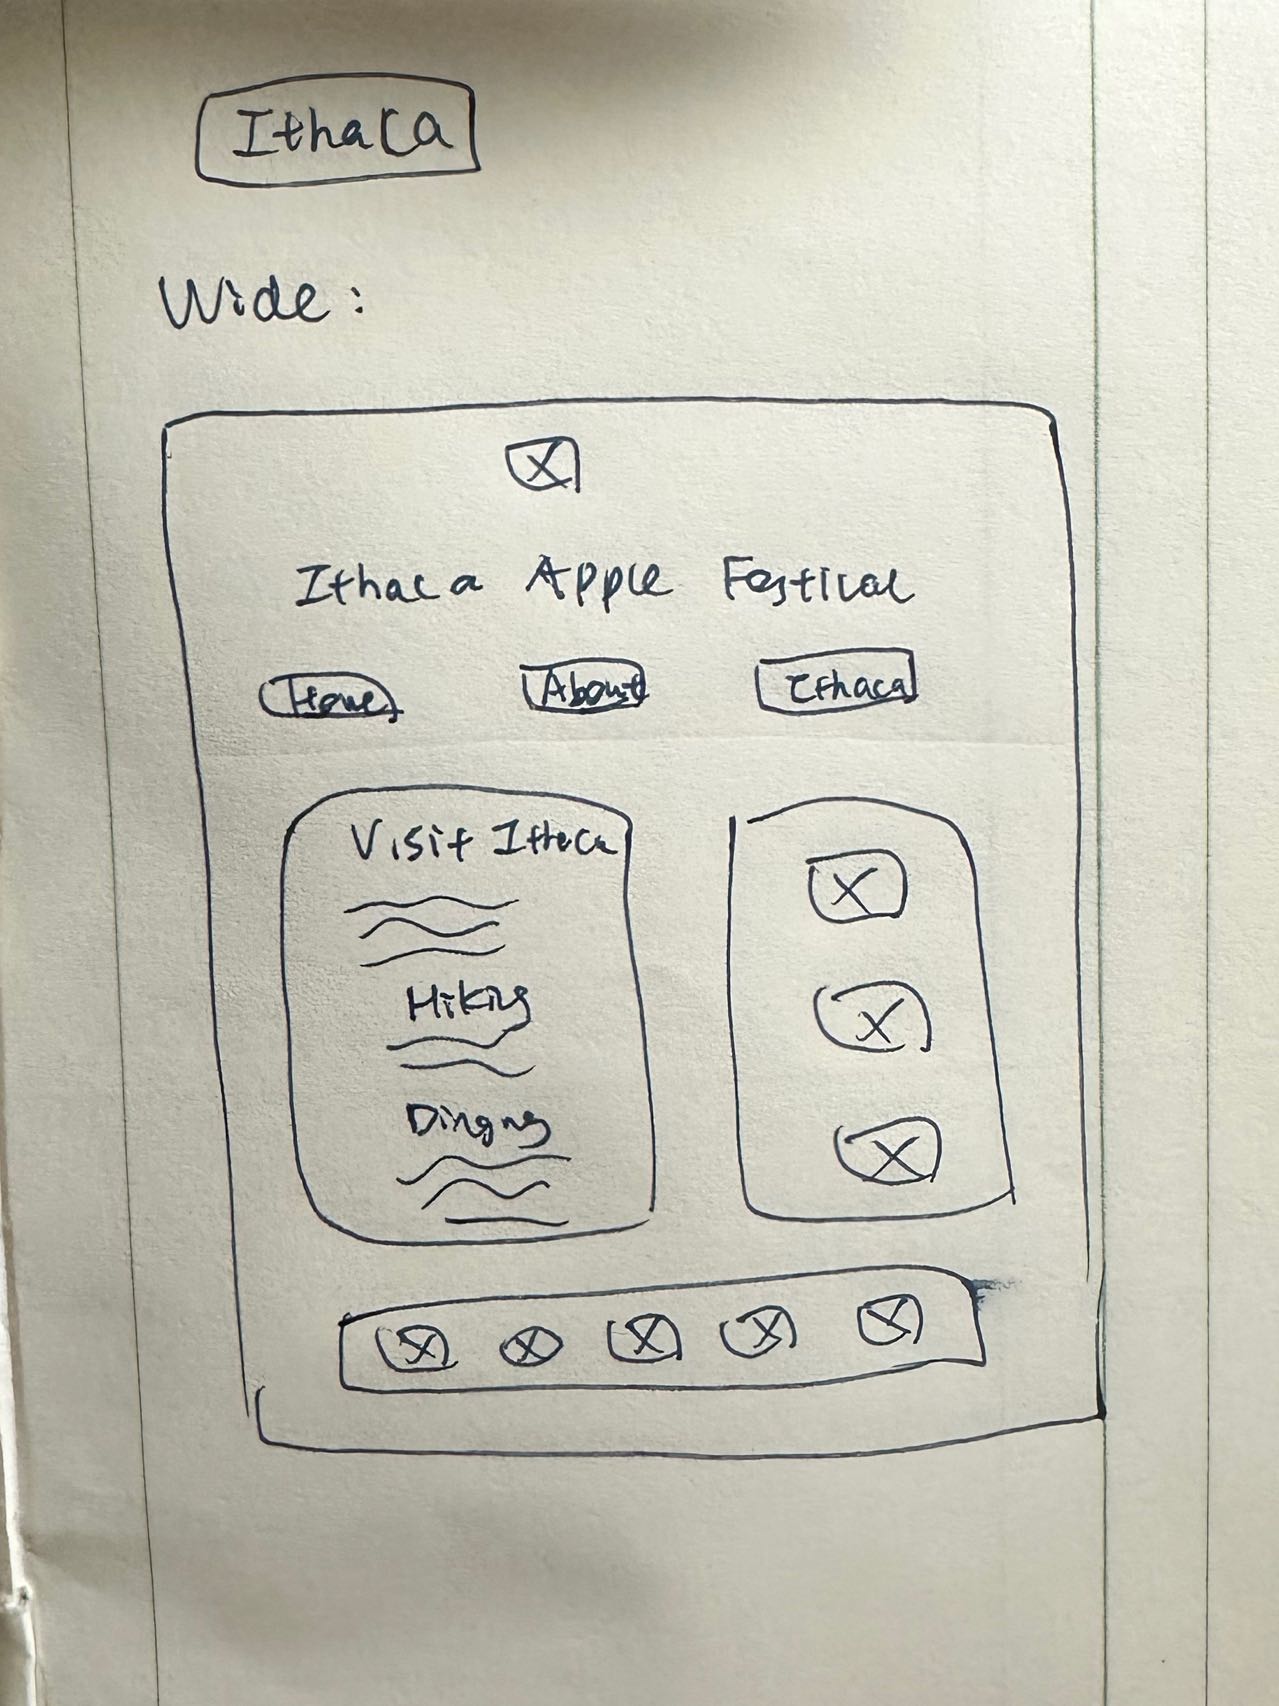 Ithaca
Wide:
Ithaca Apple Festival
Home About Ithaca
Visit Ithaca
Hiking
Dining